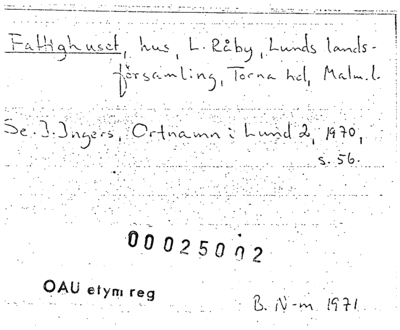 Fattighuset, hus, L. Råby, Lunds lands-
församling, Torna hd, Malm.l.
Se I. Ingers, Ortnamn i Lund 2, 1970,
s. 56.
00025002
OAU etym reg
B. N-m 1971